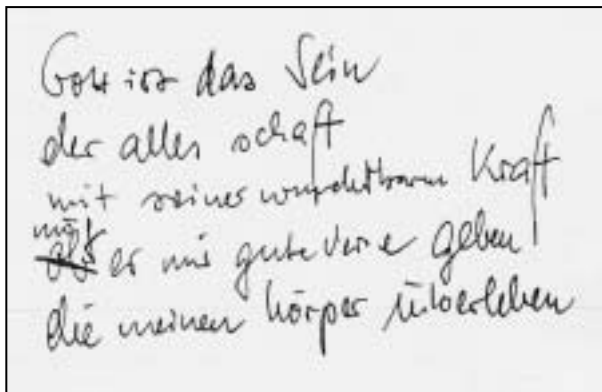 Gott ist das Sein
der alles schaft
mit seiner wunderbaren Kraft
mög er mir gute Verse geben
die meinen körper überleben